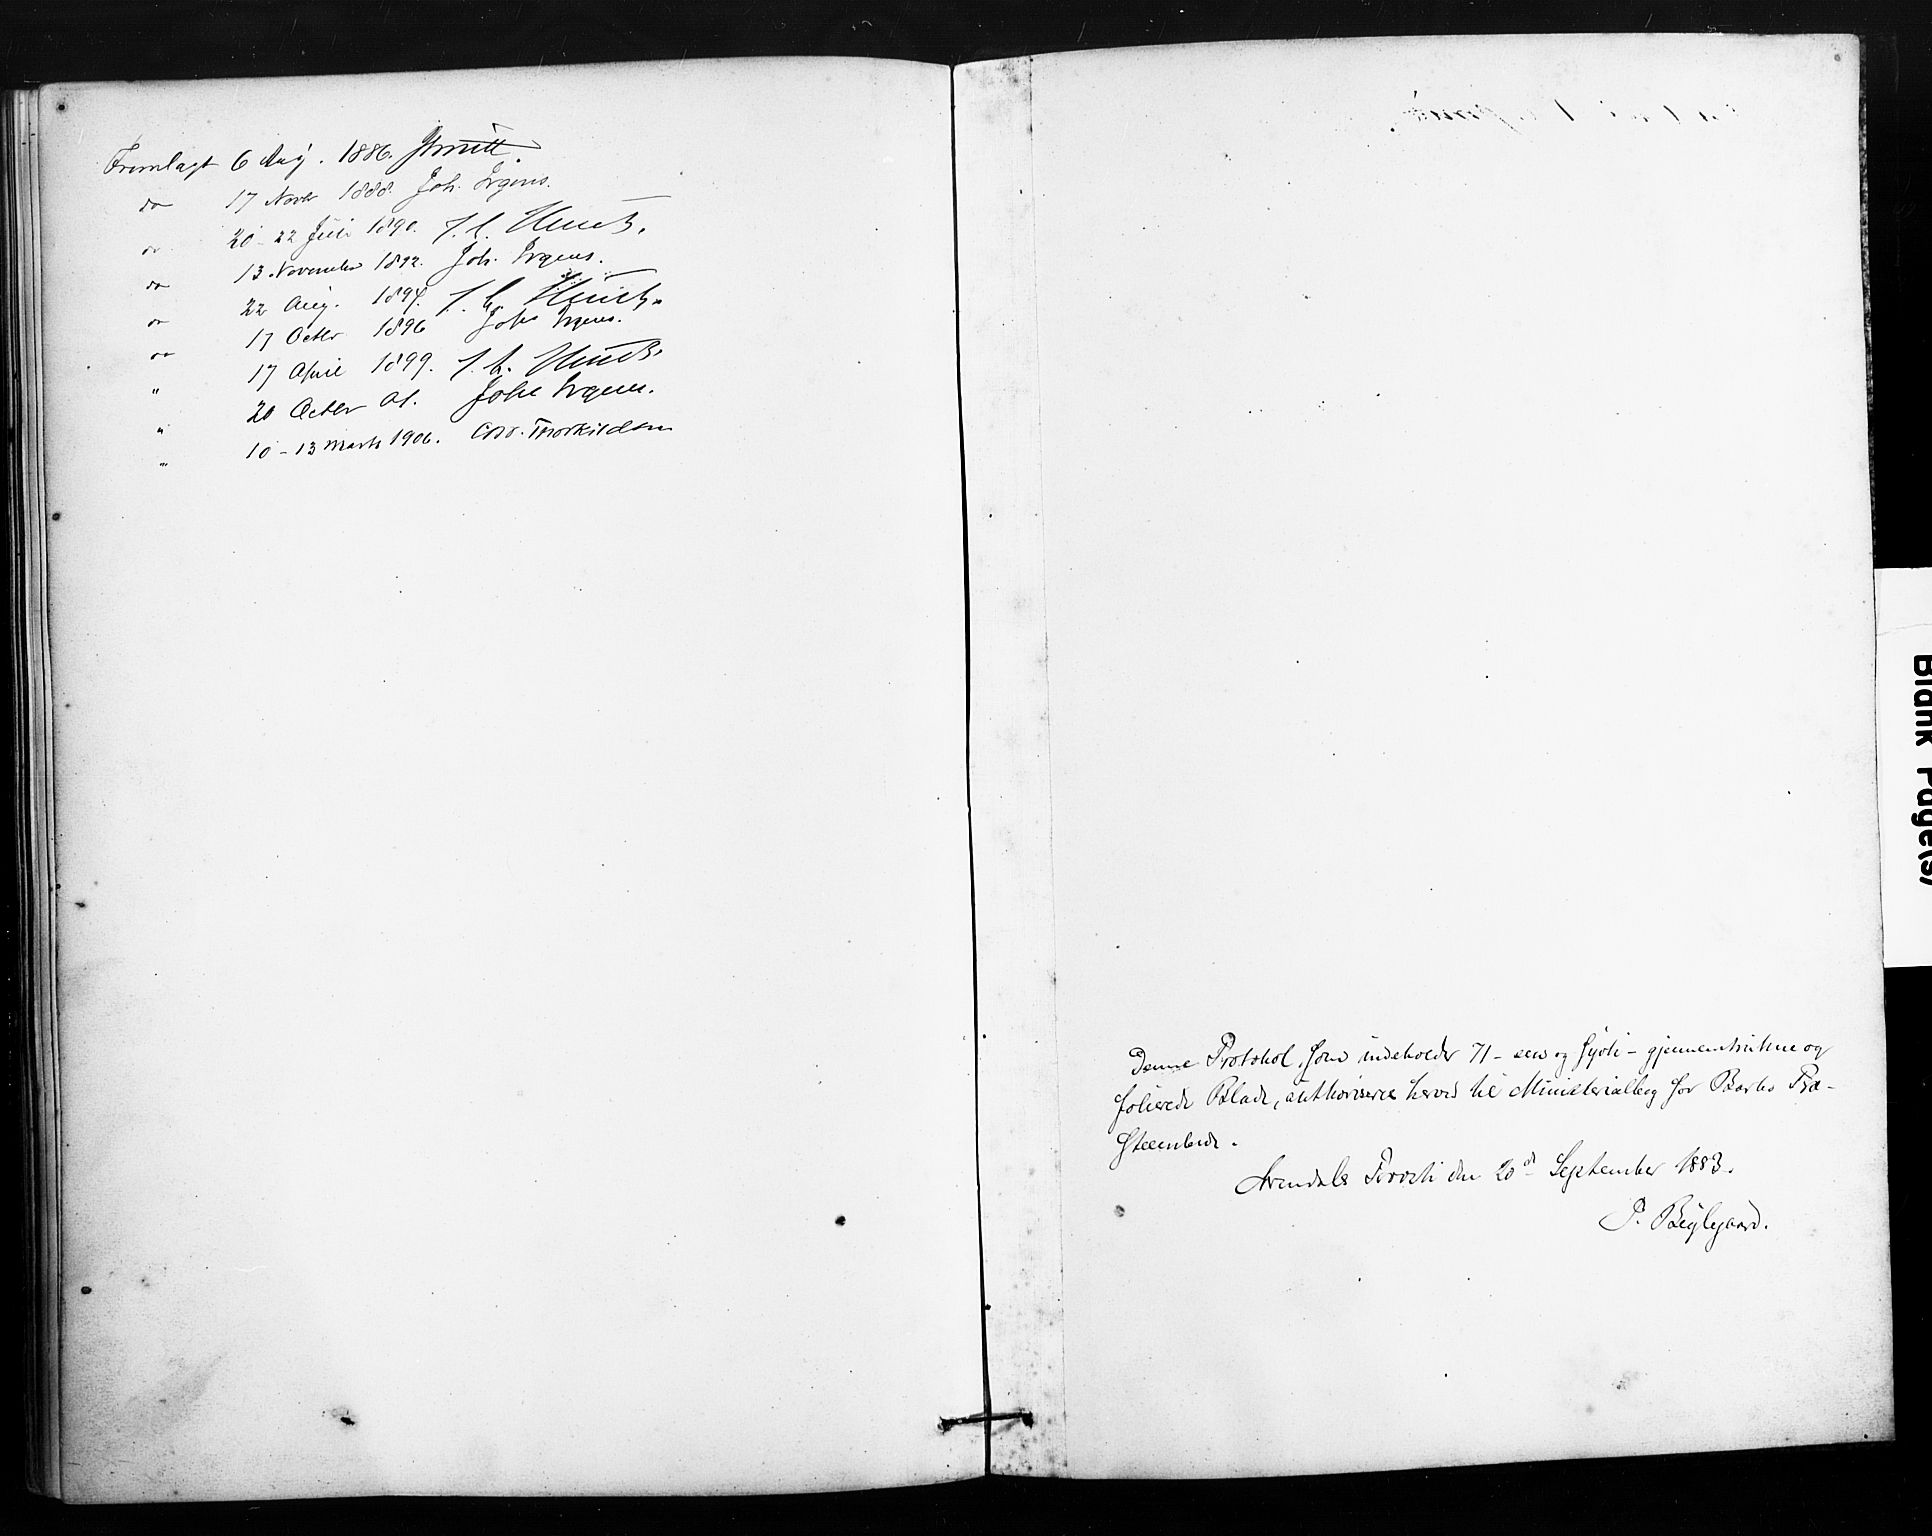 Fremlagt 6 Aug. 1886.
do 17 Novbr 1888. Joh. Irgens.
do 20-22 Juli 1890. J. C. Heuch.
do 13 November 1892. Joh. Irgens.
do 22 Aug. 1894. J. C. Heuch.
do 17 Octbr 1896 Johs Irgens.
" 17 April 1899. J. C. Heuch.
" 20 Octbr 01. Johs Irgens.
" 10-13 Marts 1906. Thorkildsen
Denne Protokol, som indeholder 71 - een og sytti - gjennemtrukne og
folierede Blade, authoriseres herved til Ministerialbog for Barbo Præ-
steembede.
Arendals Provsti den 20de September 1883.
P. Bøylgaard.
Blank Page(s)